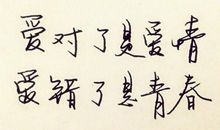 爱对了是爱情
爱错了是青春